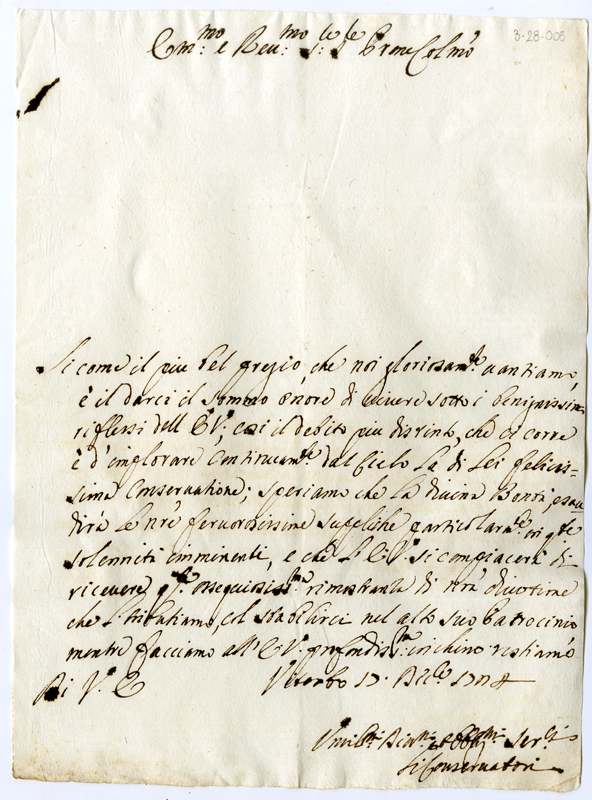 3-28-005
Em:mo e Reu:mo S: Prone Colmo
Si come il piu bel pregio, che noi gloriosam:te uantiamo,
è il darci il sommo onore di uiuere sotto i benignissimi
riflessi dell' E V:, cosi il debito piu distinto, che ci corre
è d'implorare continuam:te dal Cielo la di lei felicis-
sima conseruatione; speriamo che la diuina Bontà, esau
dirà le nrè feruorosissime suppliche particolarm:te in q:te
solennità imminenti, e che l'E: V: si compiacerà di
riceuere q:ta ossequiosiss:ma rimostranza di nrà diuotione
che l' tributiamo, col stabilirci nel alto suo Patrocinio
mentre facciamo all' E V: profondiss:mo inchino restiamo
Di V: E Viterbo 17: Bre 1704
Vmil:mi Diu:mi et Obblig:mi Ser:ri
Li Conseruatori